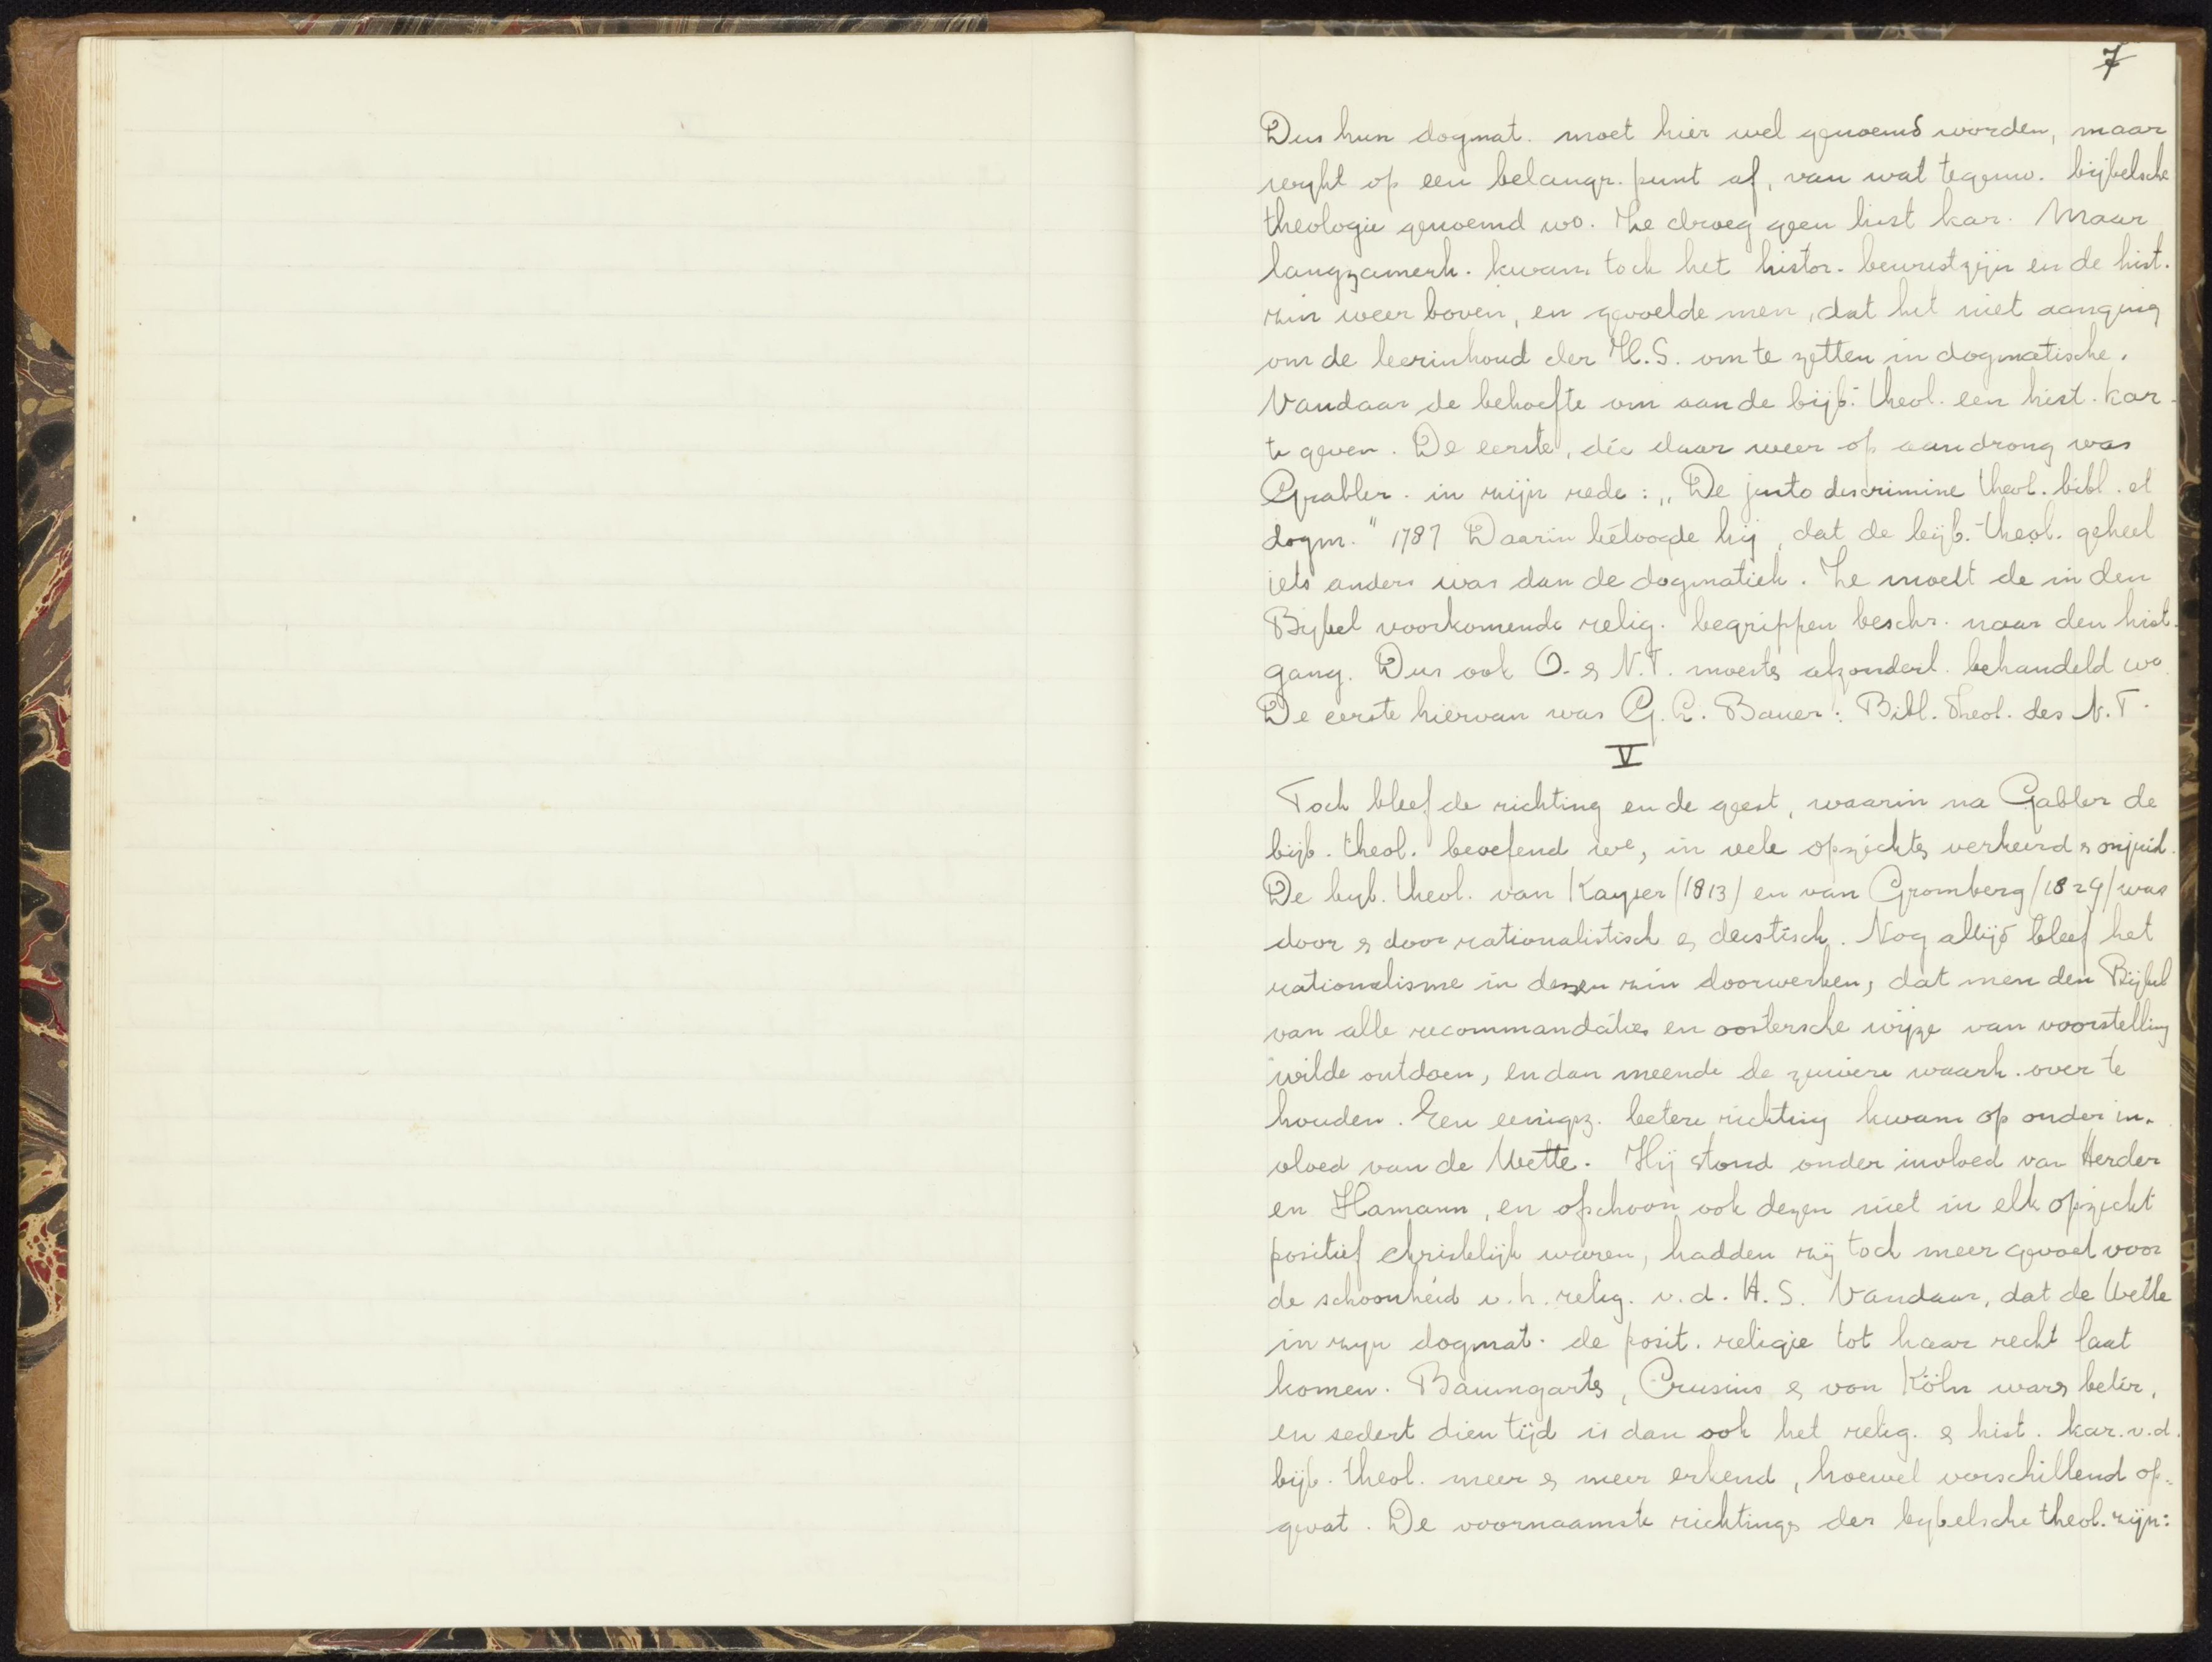 7
Dus hun dogmat. moet hier wel genoemd worden, maar
wijkt op een belangr. punt af, van wat tegenw. bijbelsche
theologie genoemd wo. Ze droeg geen hist kar. Maar
langzamerh. kwam toch het histor. bewustzijn en de hist.
zin weer boven, en gevoelde men, dat het niet aanging
om de leerinhoud der H.S. om te zetten in dogmatische.
Vandaar de behoefte om aan de bijb. theol. een hist. kar.
te geven. De eerste, die daar weer op aandrong was
Grabler. in zijn rede: „De justo discrimine theol. bibl. et
dogm." 1787 Daarin betoogde hij, dat de bijb. theol. geheel
iets anders was dan de dogmatiek. Ze moest de in den
Bijbel voorkomende relig. begrippen beschr. naar den hist.
gang. Dus ook O. & N.T. moeste afzonderl. behandeld wo.
De eerste hiervan was G. L. Bauer: Bibl. Theol. des N.T.
V
Toch bleef de richting en de geest, waarin na Gabler de
bijb. theol. beoefend we, in vele opzichte verkeerd & onjuist.
De bijb. theol. van Kayser (1813) en van Gromberg (1829) was
door & door rationalistisch & deistisch. Nog altijd bleef het
rationalisme in dezen zin doorwerken, dat men den Bijbel
van alle recommandaties en oostersche wijze van voorstelling
wilde ontdoen, en dan meende de zuivere waarh. over te
houden. Een eenigz. betere richting kwam op onder in-
vloed van de Wette. Hij stond onder invloed van Herder
en Hamann, en ofschoon ook dezen niet in elk opzicht
positief christelijk waren, hadden zij toch meer gevoel voor
de schoonheid v. h. relig. v. d. H. S. Vandaar, dat de Wette
in zijn dogmat. de posit. religie tot haar recht laat
komen. Baumgarte, Crusius & von Köln ware beter,
en sedert dien tijd is dan ook het relig. & hist. kar. v. d.
bijb. theol. meer & meer erkend, hoewel verschillend op-
gevat. De voornaamste richtinge der bijbelsche theol. zijn: